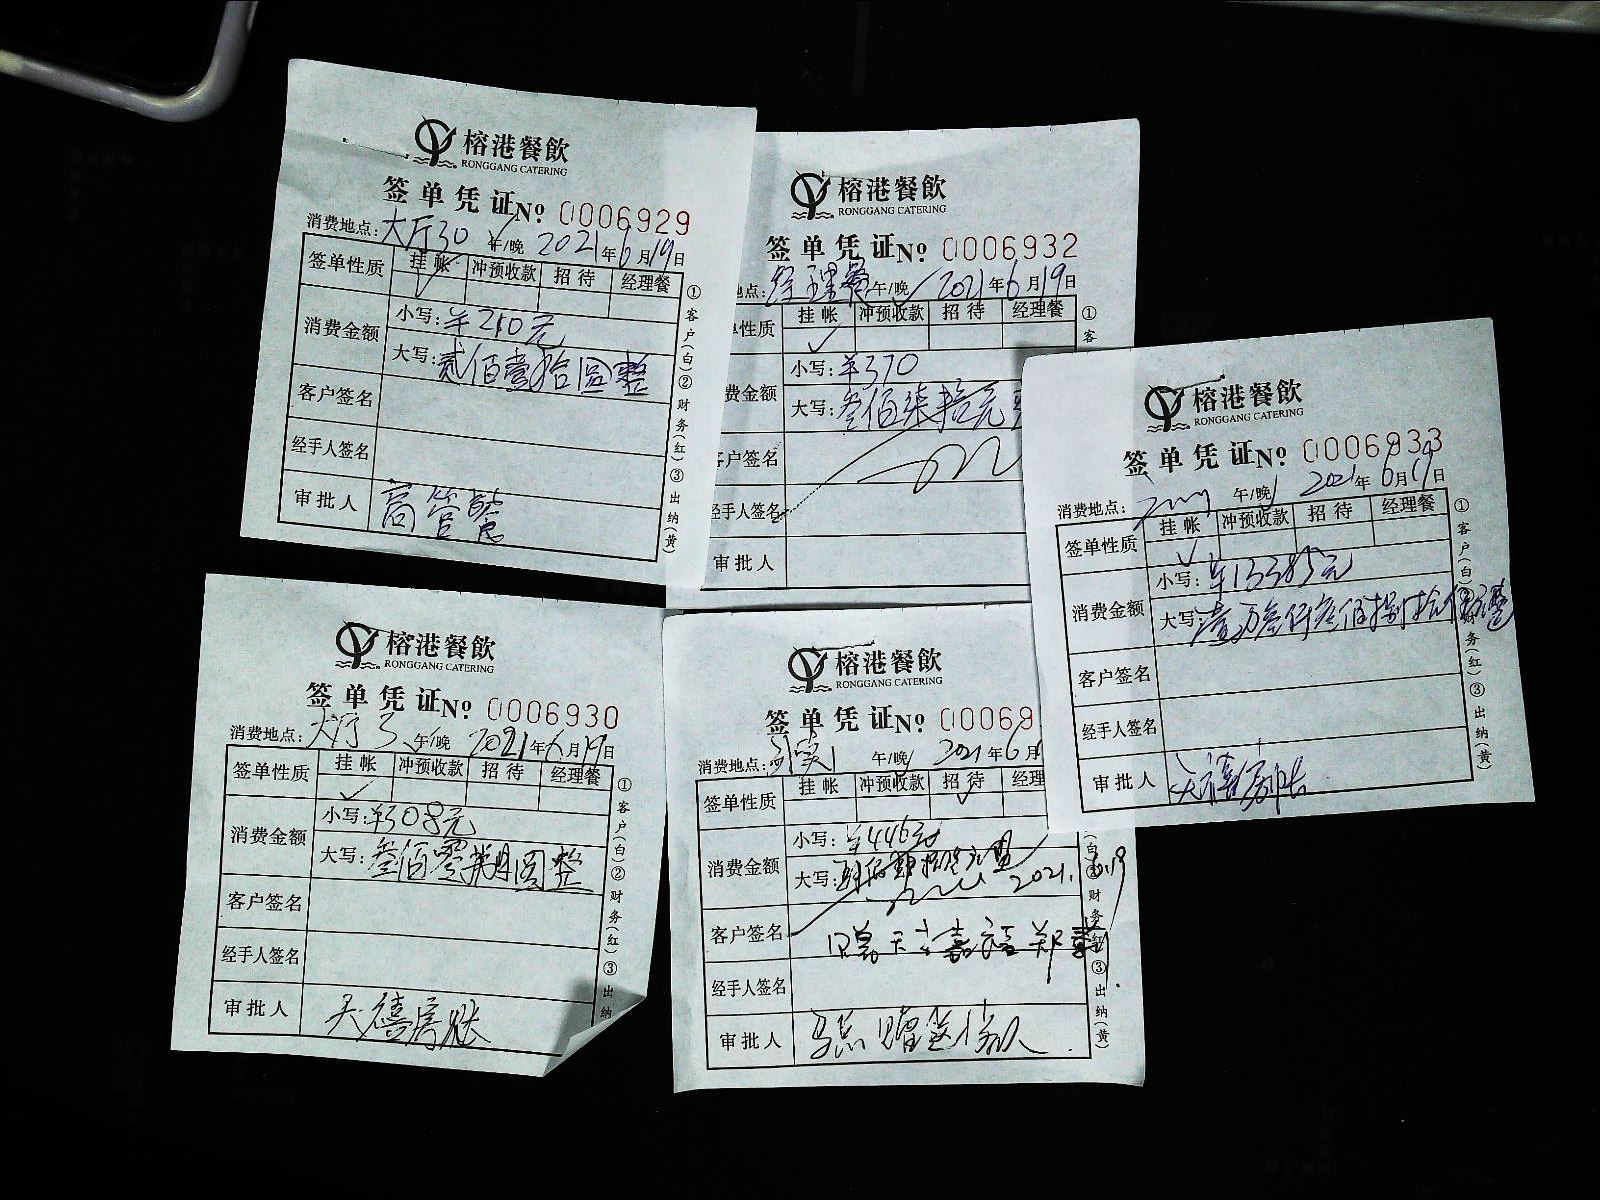 榕港餐飲
RONGGANG CATERING
签单凭证 No 0006929
消费地点: 大厅30 午/晚 2021年6月19日
签单性质 挂帐 冲预收款 招待 经理餐
消费金额 小写: ¥210元
大写: 贰佰壹拾圆整
客户签名
经手人签名
审批人 高管餐
①客户(白)②财务(红)③出纳(黄)
榕港餐飲
RONGGANG CATERING
签单凭证 No 0006932
地点: 经理餐 午/晚 2021年6月19日
单性质 挂帐 冲预收款 招待 经理餐
费金额 小写: ¥370
大写: 叁佰柒拾元
客户签名
经手人签名
审批人
①客
榕港餐飲
RONGGANG CATERING
签单凭证 No 0006933
消费地点: 午/晚 2021年6月19日
签单性质 挂帐 冲预收款 招待 经理餐
消费金额 小写: ¥13385元
大写: 壹万叁仟叁佰捌拾伍元整
客户签名
经手人签名
审批人 天禧
①客户(白)②财务(红)③出纳(黄)
榕港餐飲
RONGGANG CATERING
签单凭证 No 0006930
消费地点: 大厅3 午/晚 2021年6月19日
签单性质 挂帐 冲预收款 招待 经理餐
消费金额 小写: ¥308元
大写: 叁佰零捌圆整
客户签名
经手人签名
审批人 天禧房账
①客户(白)②财务(红)③出纳(黄)
榕港餐飲
RONGGANG CATERING
签单凭证 No 00069
消费地点: 午/晚 2021年6月
签单性质 挂帐 冲预收款 招待 经理
消费金额 小写: ¥446元
大写: 2021.6.19
客户签名
经手人签名
审批人
(白)②财务(红)③出纳(黄)